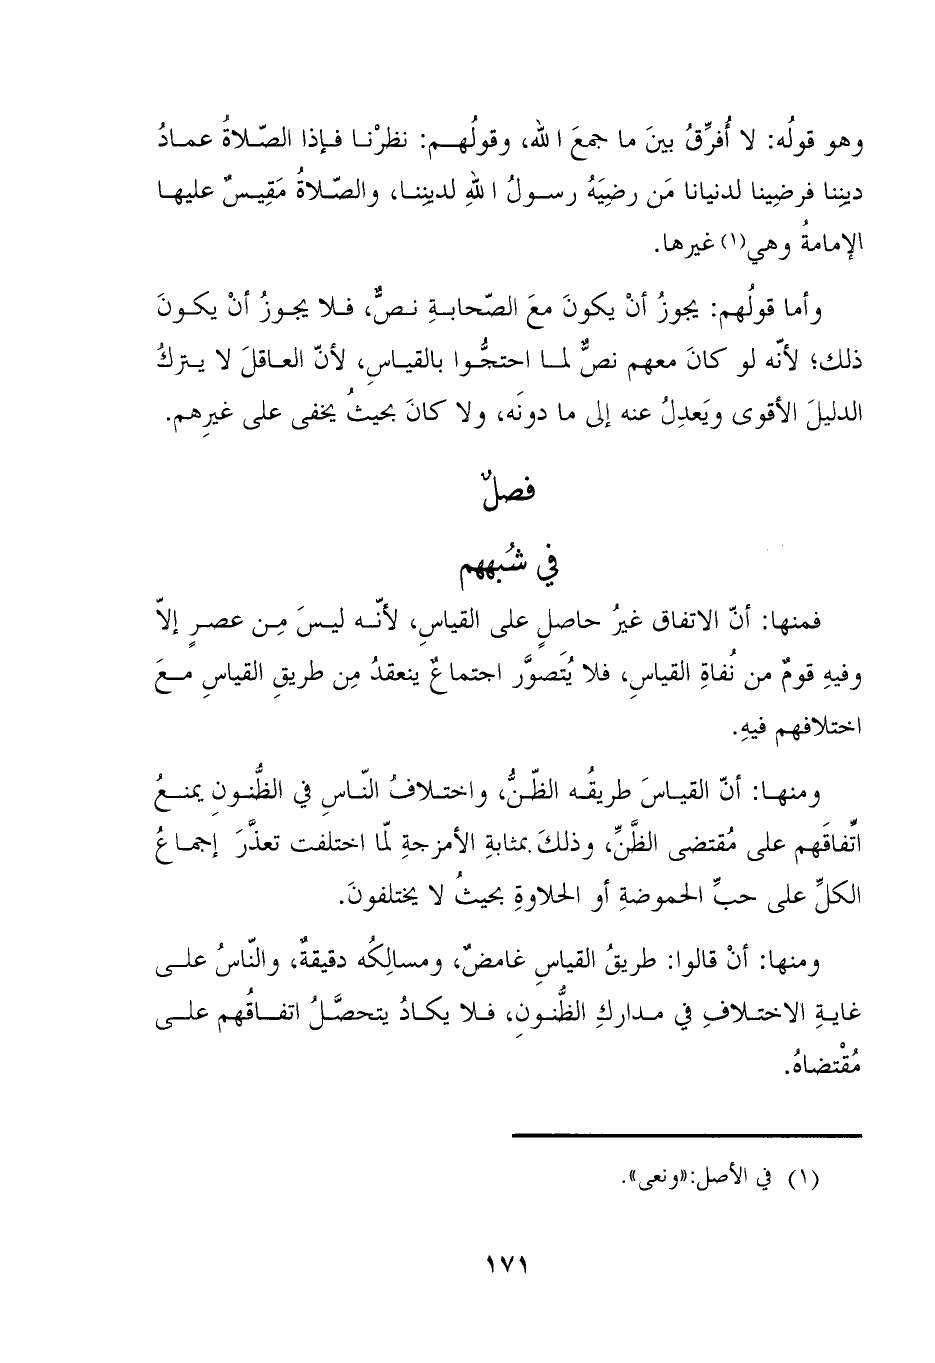 وهو قولُه: لا أُفرِّقُ بينَ ما جمعَ الله، وقولُهم: نظرْنا فإذا الصّلاةُ عمادُ
دينِنا فرضِينا لدنيانا مَن رضِيَهُ رسولُ اللهِ لديننا، والصّلاةُ مَقِيسٌ عليها
الإمامةُ وهي(١) غيرها.
وأما قولُهم: يجوزُ أنْ يكونَ معَ الصّحابةِ نصٌّ، فلا يجوزُ أنْ يكونَ
ذلك؛ لأنّه لو كانَ معهم نصٌّ لما احتجُّوا بالقياسِ، لأنّ العاقلَ لا يتركُ
الدليلَ الأقوى ويَعدِلُ عنه إلى ما دونَه، ولا كانَ بحيثُ يخفى على غيرِهم.
فصلٌ
في شُبههم
فمنها: أنّ الاتفاق غيرُ حاصلٍ على القياسِ، لأنّه ليسَ مِن عصرٍ إلاّ
وفيهِ قومٌ من نُفاةِ القياسِ، فلا يُتَصوَّر اجتماعٌ ينعقدُ مِن طريقِ القياسِ معَ
اختلافهم فيهِ.
ومنها: أنّ القياسَ طريقُه الظّنُّ، واختلافُ النّاسِ في الظُّنونِ يمنعُ
اتِّفاقَهم على مُقتضى الظَّنِّ، وذلكَ بمثابةِ الأمزجةِ لمّا اختلفت تعذَّرَ إجماعُ
الكلِّ على حبِّ الحموضةِ أو الحلاوةِ بحيثُ لا يختلفونَ.
ومنها: أنْ قالوا: طريقُ القياسِ غامضٌ، ومسالِكُه دقيقةٌ، والنّاسُ على
غايةِ الاختلافِ في مداركِ الظُّنونِ، فلا يكادُ يتحصَّلُ اتفاقُهم على
مُقْتضاهُ.
(١) في الأصل:«ونعى».
١٧١